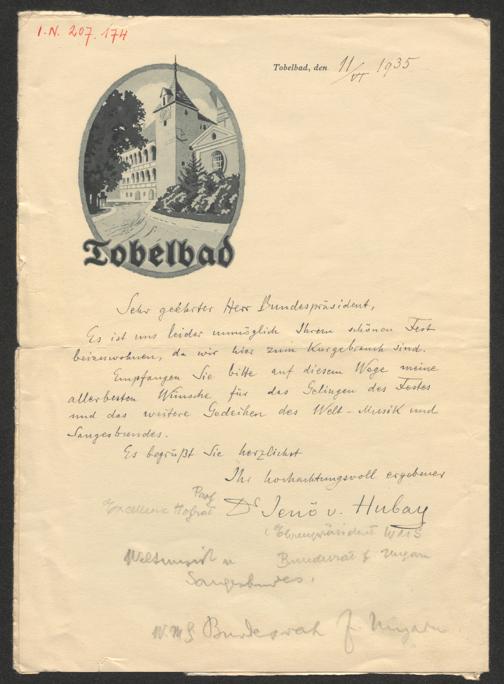 I.N. 207.174
Tobelbad, den 11/VI 1935
Tobelbad
Sehr geehrter Herr Bundespräsident,
Es ist uns leider unmöglich Ihrem schönen Fest
beizuwohnen, da wir hier zum Kurgebrauch sind.
Empfangen Sie bitte auf diesem Wege meine
allerbesten Wünsche für das Gelingen des Festes
und das weitere Gedeihen des Welt-Musik und
Sangesbundes.
Es begrüßt Sie herzlichst
Ihr hochachtungsvoll ergebener
Prof
Excellenz Hofrat Dr Jenö v. Hubay
(Ehrenpräsident WMS
Weltmusik u Bundesrat f Ungarn
Sangesbundes.
W.M.S Bundesrat f. Ungarn